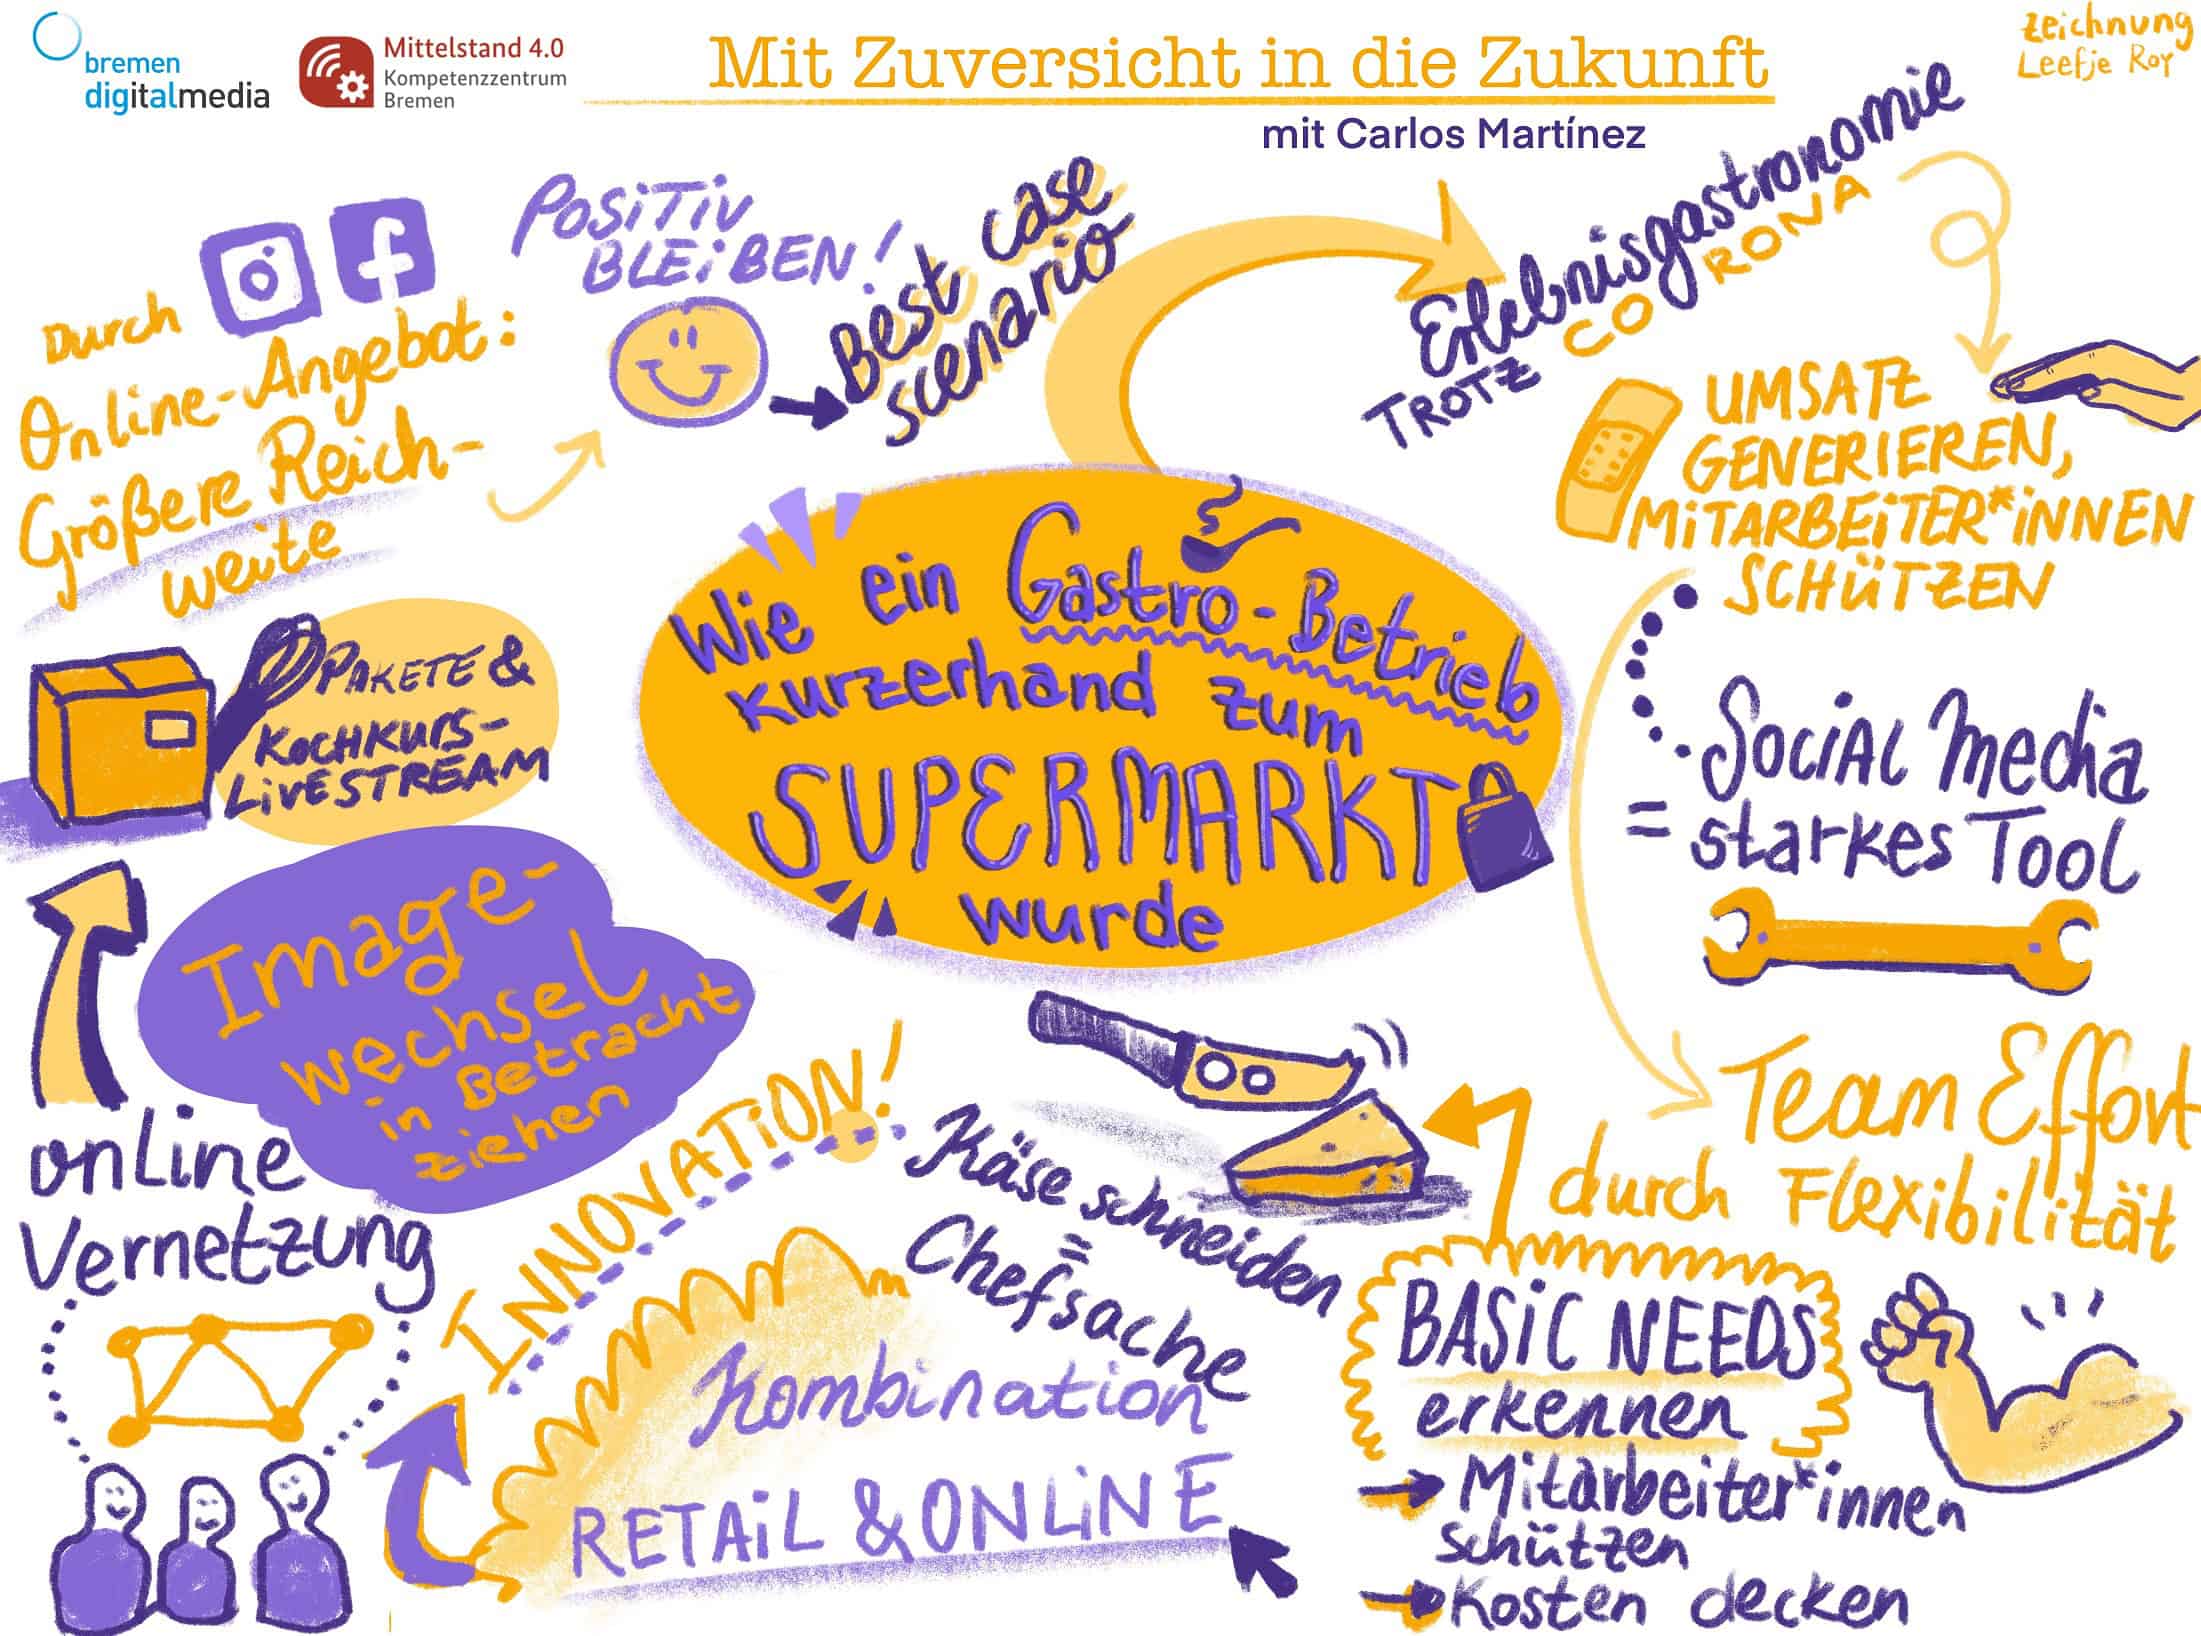 bremen
digitalmedia
Mittelstand 4.0
Kompetenzzentrum
Bremen
Mit Zuversicht in die Zukunft
mit Carlos Martínez
Zeichnung
Leefje Roy
Durch
Online-Angebot:
Größere Reich-
weite
POSiTiV
BLEiBEN!
Best case
scenario
Erlebnisgastronomie
TROTZ CORONA
UMSATZ
GENERIEREN,
MiTARBEiTER*iNNEN
SCHÜTZEN
Wie ein Gastro-Betrieb
kurzerhand zum
SUPERMARKT
wurde
PAKETE &
KOCHKURS-
LiVESTREAM
Social Media
= starkes Tool
Image-
wechsel
in Betracht
ziehen
online
Vernetzung
INNOVATiON!
Käse schneiden
=
Chefsache
Team Effort
durch Flexibilität
Kombination
RETAiL & ONLiNE
BASiC NEEDS
erkennen
Mitarbeiter*innen
schützen
Kosten decken